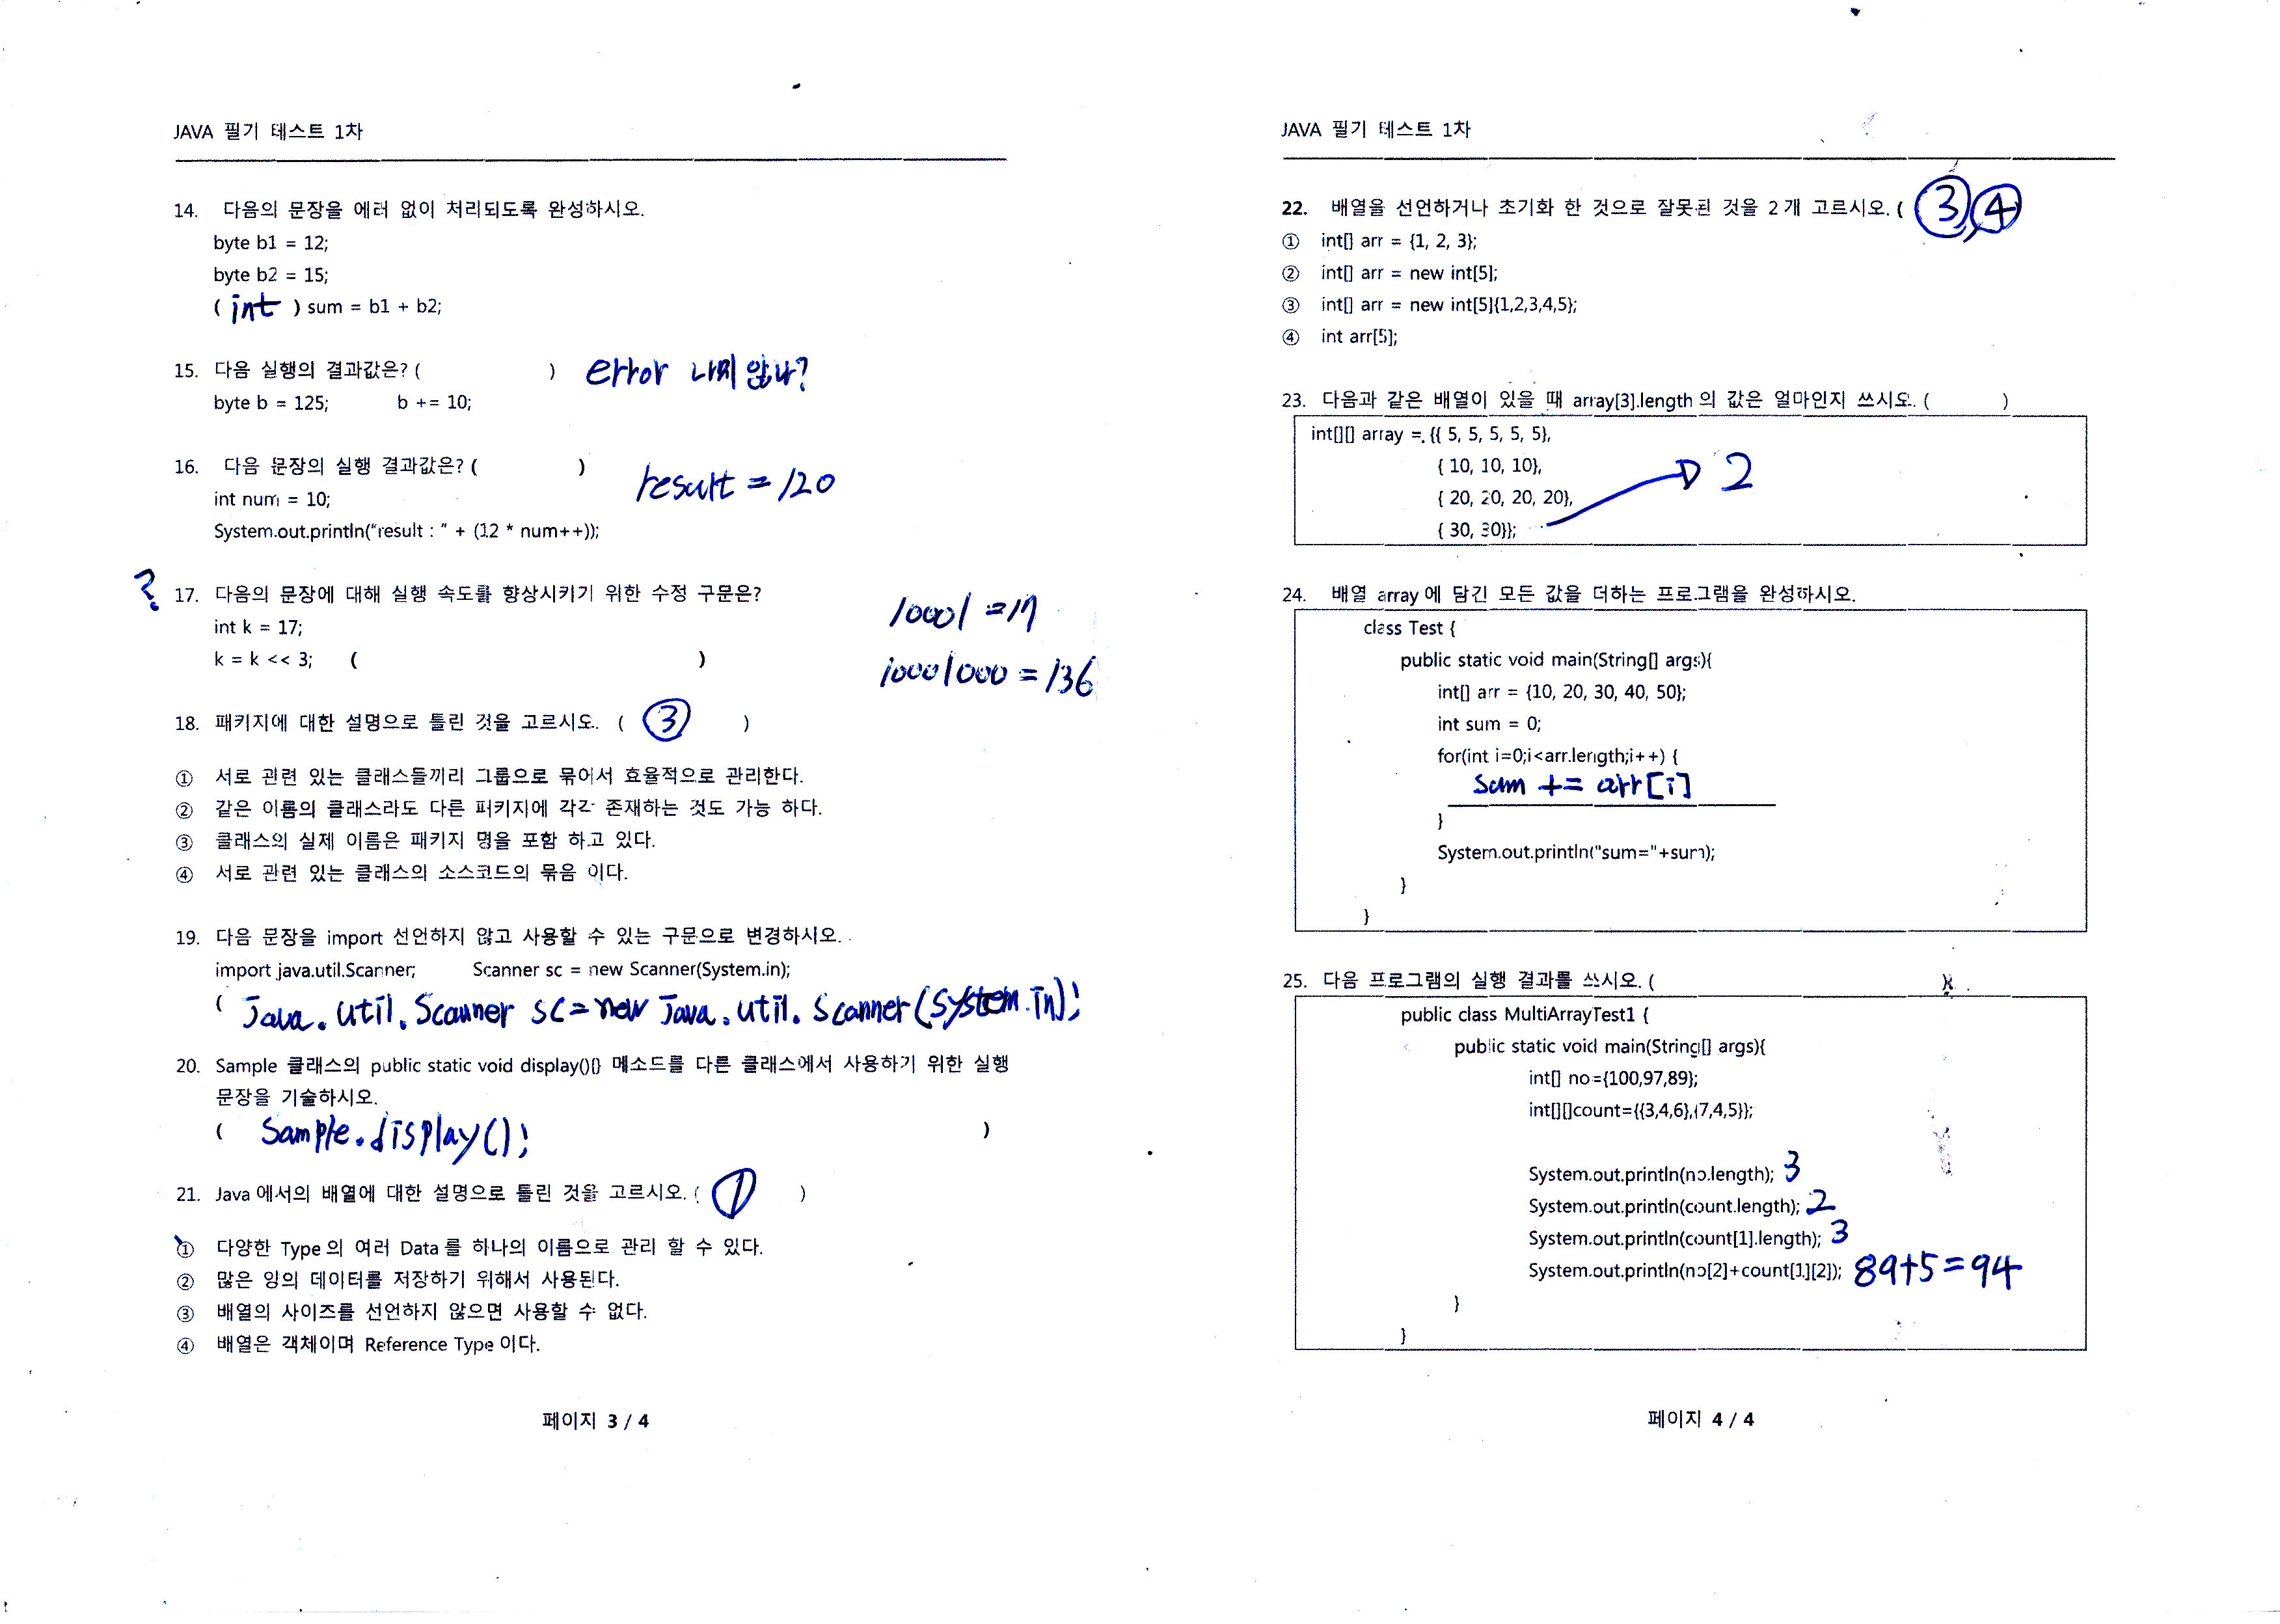 JAVA 필기 테스트 1차
14. 다음의 문장을 에러 없이 처리되도록 완성하시오.
byte b1 = 12;
byte b2 = 15;
( int ) sum = b1 + b2;
15. 다음 실행의 결과값은? ( ) error 나지 않나?
byte b = 125; b += 10;
16. 다음 문장의 실행 결과값은? ( )
result = 120
int num = 10;
System.out.println("result : " + (12 * num++));
? 17. 다음의 문장에 대해 실행 속도를 향상시키기 위한 수정 구문은?
10001 = 17
int k = 17;
k = k << 3; ( )
10001000 = 136
18. 패키지에 대한 설명으로 틀린 것을 고르시오. ( ③ )
① 서로 관련 있는 클래스들끼리 그룹으로 묶어서 효율적으로 관리한다.
② 같은 이름의 클래스라도 다른 퍼키지에 각각 존재하는 것도 가능 하다.
③ 클래스의 실제 이름은 패키지 명을 포함 하고 있다.
④ 서로 관련 있는 클래스의 소스코드의 묶음 이다.
19. 다음 문장을 import 선언하지 않고 사용할 수 있는 구문으로 변경하시오.
import java.util.Scanner; Scanner sc = new Scanner(System.in);
( java.util.Scanner sc = new java.util.Scanner(System.in);
20. Sample 클래스의 public static void display(){} 메소드를 다른 클래스에서 사용하기 위한 실행
문장을 기술하시오.
( Sample.display(); )
21. Java 에서의 배열에 대한 설명으로 틀린 것을 고르시오. ( ① )
① 다양한 Type 의 여러 Data 를 하나의 이름으로 관리 할 수 있다.
② 많은 양의 데이터를 저장하기 위해서 사용된다.
③ 배열의 사이즈를 선언하지 않으면 사용할 수 없다.
④ 배열은 객체이며 Reference Type 이다.
페이지 3 / 4
JAVA 필기 테스트 1차
22. 배열을 선언하거나 초기화 한 것으로 잘못된 것을 2개 고르시오. ( ③, ④
① int[] arr = {1, 2, 3};
② int[] arr = new int[5];
③ int[] arr = new int[5]{1,2,3,4,5};
④ int arr[5];
23. 다음과 같은 배열이 있을 때 array[3].length 의 값은 얼마인지 쓰시오. ( )
int[][] array = {{ 5, 5, 5, 5, 5},
{ 10, 10, 10},
{ 20, 20, 20, 20},
{ 30, 30}};
2
24. 배열 array 에 담긴 모든 값을 더하는 프로그램을 완성하시오.
class Test {
public static void main(String[] args){
int[] arr = {10, 20, 30, 40, 50};
int sum = 0;
for(int i=0;i<arr.length;i++) {
sum += arr[i]
}
System.out.println("sum="+sum);
}
}
25. 다음 프로그램의 실행 결과를 쓰시오. ( )
public class MultiArrayTest1 {
public static void main(String[] args){
int[] no={100,97,89};
int[][]count={{3,4,6},{7,4,5}};
System.out.println(no.length); 3
System.out.println(count.length); 2
System.out.println(count[1].length); 3
System.out.println(no[2]+count[1][2]); 89+5=94
}
}
페이지 4 / 4